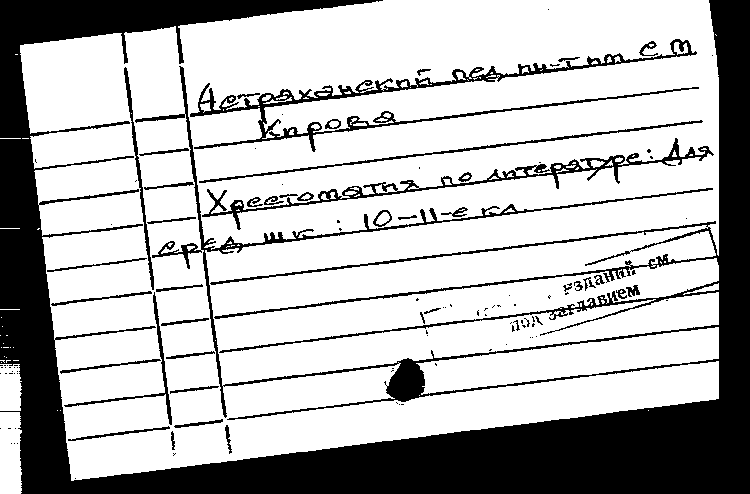 Астраханский пед ин-т им С М
Кирова
Хрестоматия по литературе: Для
сред шк : 10-11-е кл.
изданий см.
под заглавием